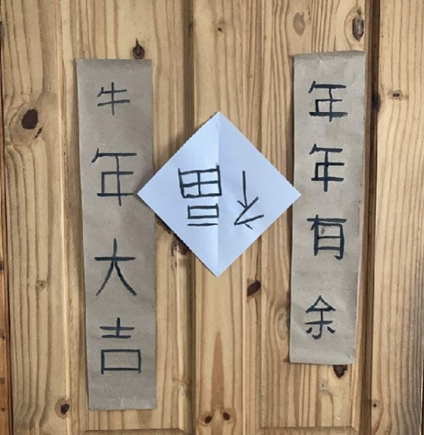 年年有余
福
牛年大吉